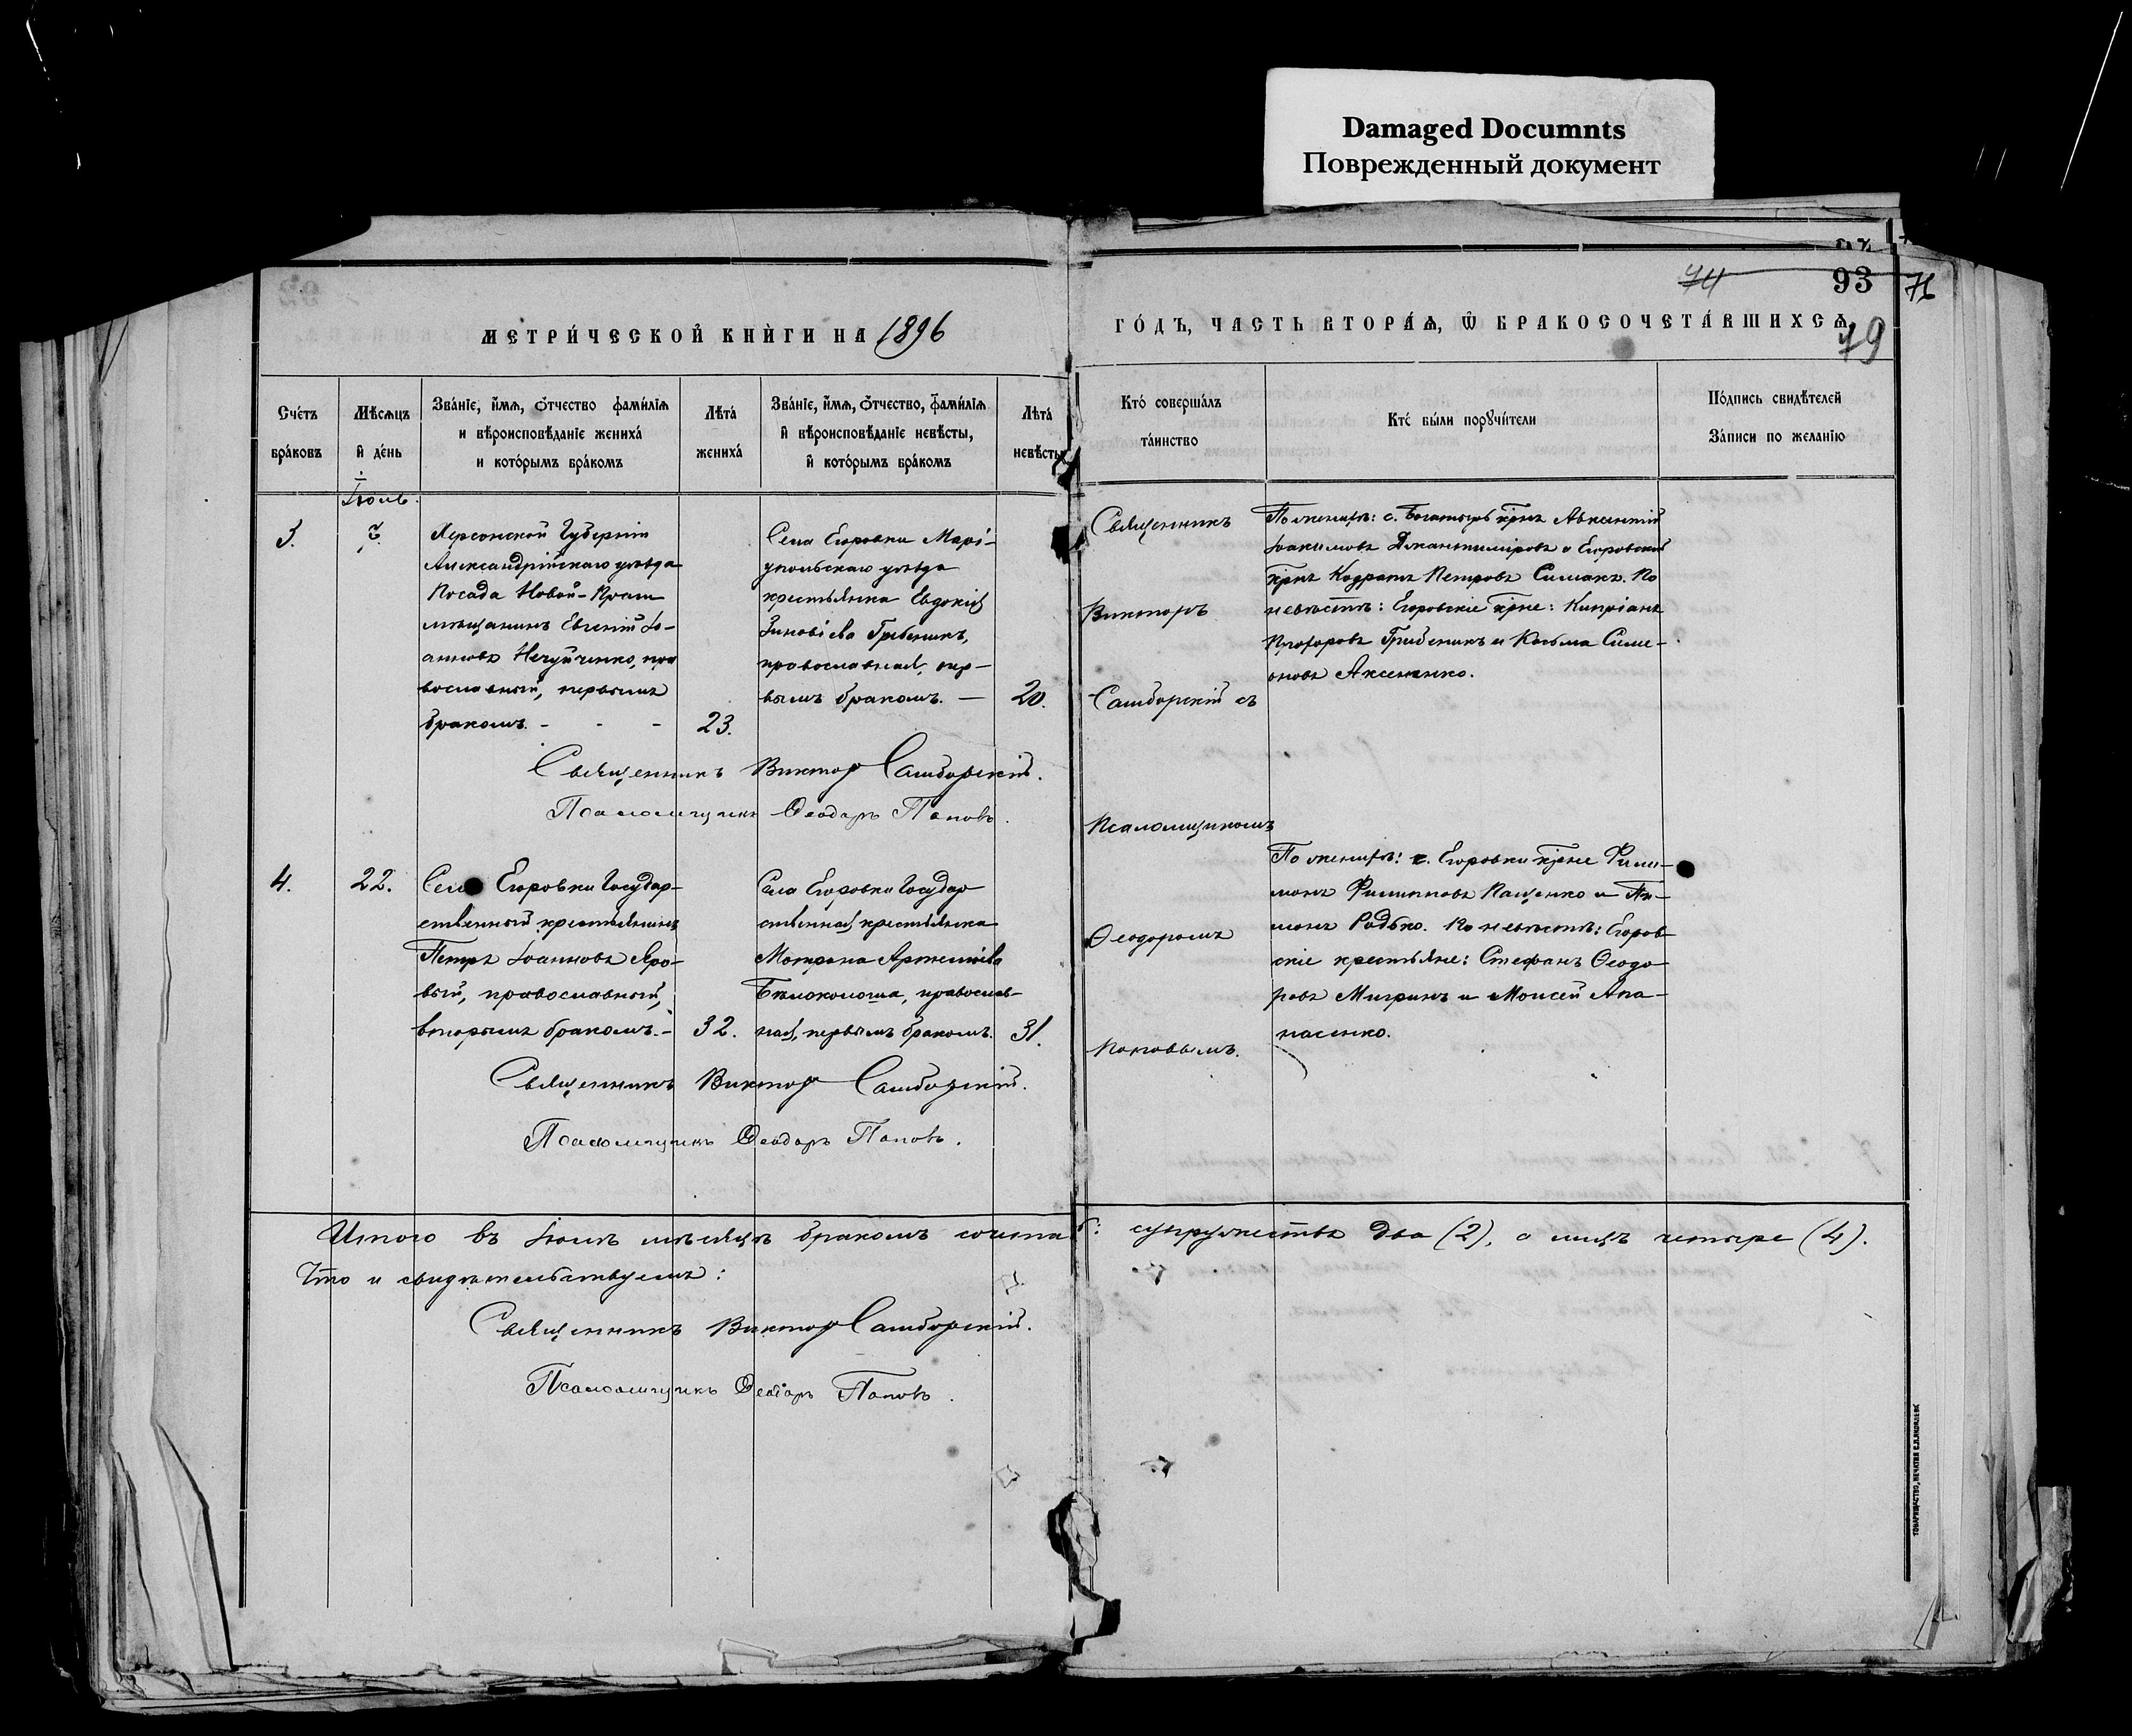 Damaged Documnts
Поврежденный документ
93
74
76
79
МЕТРИ́ЧЕСКОЙ КНИ́ГИ НА 1896
ГО́ДЪ, ЧАСТЬ ВТОРА́Ѧ, Ѡ҆ БРАКОСОЧЕТА́ВШИХСѦ
Сче́тъ
бра́ковъ
Мѣ́сѧцъ
и҆ де́нь
Зва́нїе, и҆́мѧ, ѻ҆́тчество фами́лїѧ
и вѣроисповѣ́данїе жениха́
и кото́рымъ бра́комъ
Лѣта́
жениха́
Зва́нїе, и҆́мѧ, ѻ҆́тчество, фами́лїѧ
и҆ вѣроисповѣ́данїе невѣ́сты,
и҆ кото́рымъ бра́комъ
Лѣта́
невѣ́сты
Кто́ соверша́лъ
та́инство
Кто́ бы́ли порꙋчи́тели
По́дпись свидѣ́телей
За́писи по жела́нїю
Іюль.
3.
7.
Херсонской Губерніи
Александрійскаго уѣзда
Посада Новой-Праги
мѣщанинъ Евгеній Іо-
анновъ Нечуйченко, пра
вославный, первымъ
бракомъ. - - -
23.
Села Егоровки Марі-
упольскаго уѣзда
крестьянка Евдокія
Зиновіева Гребеникъ,
православная, пер-
вымъ бракомъ. —
20.
Священникъ
Викторъ
Самборскій съ
Псаломщикомъ
Ѳеодоромъ
Поповымъ.
По женихѣ: с. Богатырь крнъ Авксентій
Іоакимовъ Джантимировъ и Егоровскій
крнъ Кодратъ Петровъ Симакъ. По
невѣстѣ: Егоровскіе крне: Кипріанъ
Прохоровъ Гребеникъ и Косьма Симе-
оновъ Аксененко.
Священникъ Викторъ Самборскій.
Псаломщикъ Ѳеодоръ Поповъ.
4.
22.
Села Егоровки Государ-
ственный крестьянинъ
Петръ Іоанновъ Яро-
вый, православный,
вторымъ бракомъ. -
32.
Села Егоровки Государ
ственная крестьянка
Матрона Артеміева
Бѣлоколоша, православ-
ная, первымъ бракомъ.
31.
По женихѣ: с. Егоровки крне Фили-
монъ Филипповъ Пащенко и Ти-
монъ Радько. По невѣстѣ: Егоров
скіе крестьяне: Стефанъ Ѳеодо-
ровъ Мигринъ и Моисей Апа-
насенко.
Священникъ Викторъ Самборскій.
Псаломщикъ Ѳеодоръ Поповъ.
Итого въ Іюлѣ мѣсяцѣ бракомъ сочета супружествъ два (2), а лицъ четыре (4).
Что и свидѣтельствуемъ:
Священникъ Викторъ Самборскій.
Псаломщикъ Ѳеодоръ Поповъ.